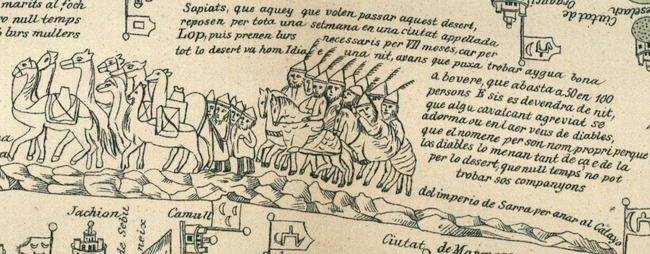 marits al foch
ro null temps
lurs mullers
Sapiats, que aquey que volen passar aquest desert,
reposen per tota una setmana en una ciutat appellada
Lop, puis prenen lurs necessaris per VII meses, car per
tot lo desert va hom I dia e una nit, avans que puxa trobar aygua bona
a bovere, que abasta a 50 en 100
persons E sis es devendra de nit,
que algu cavalcant agreviat se
adorma ou entaer veus de diables,
que el nomene per son nom propri perque
los diables lo menan tant de ça e de la
per lo desert, que null temps no pot
trobar sos companyons
del imperio de Sarra per anar al Catayo
Jachion
Camull
de Sebur
Ciutat de
Ciutat de